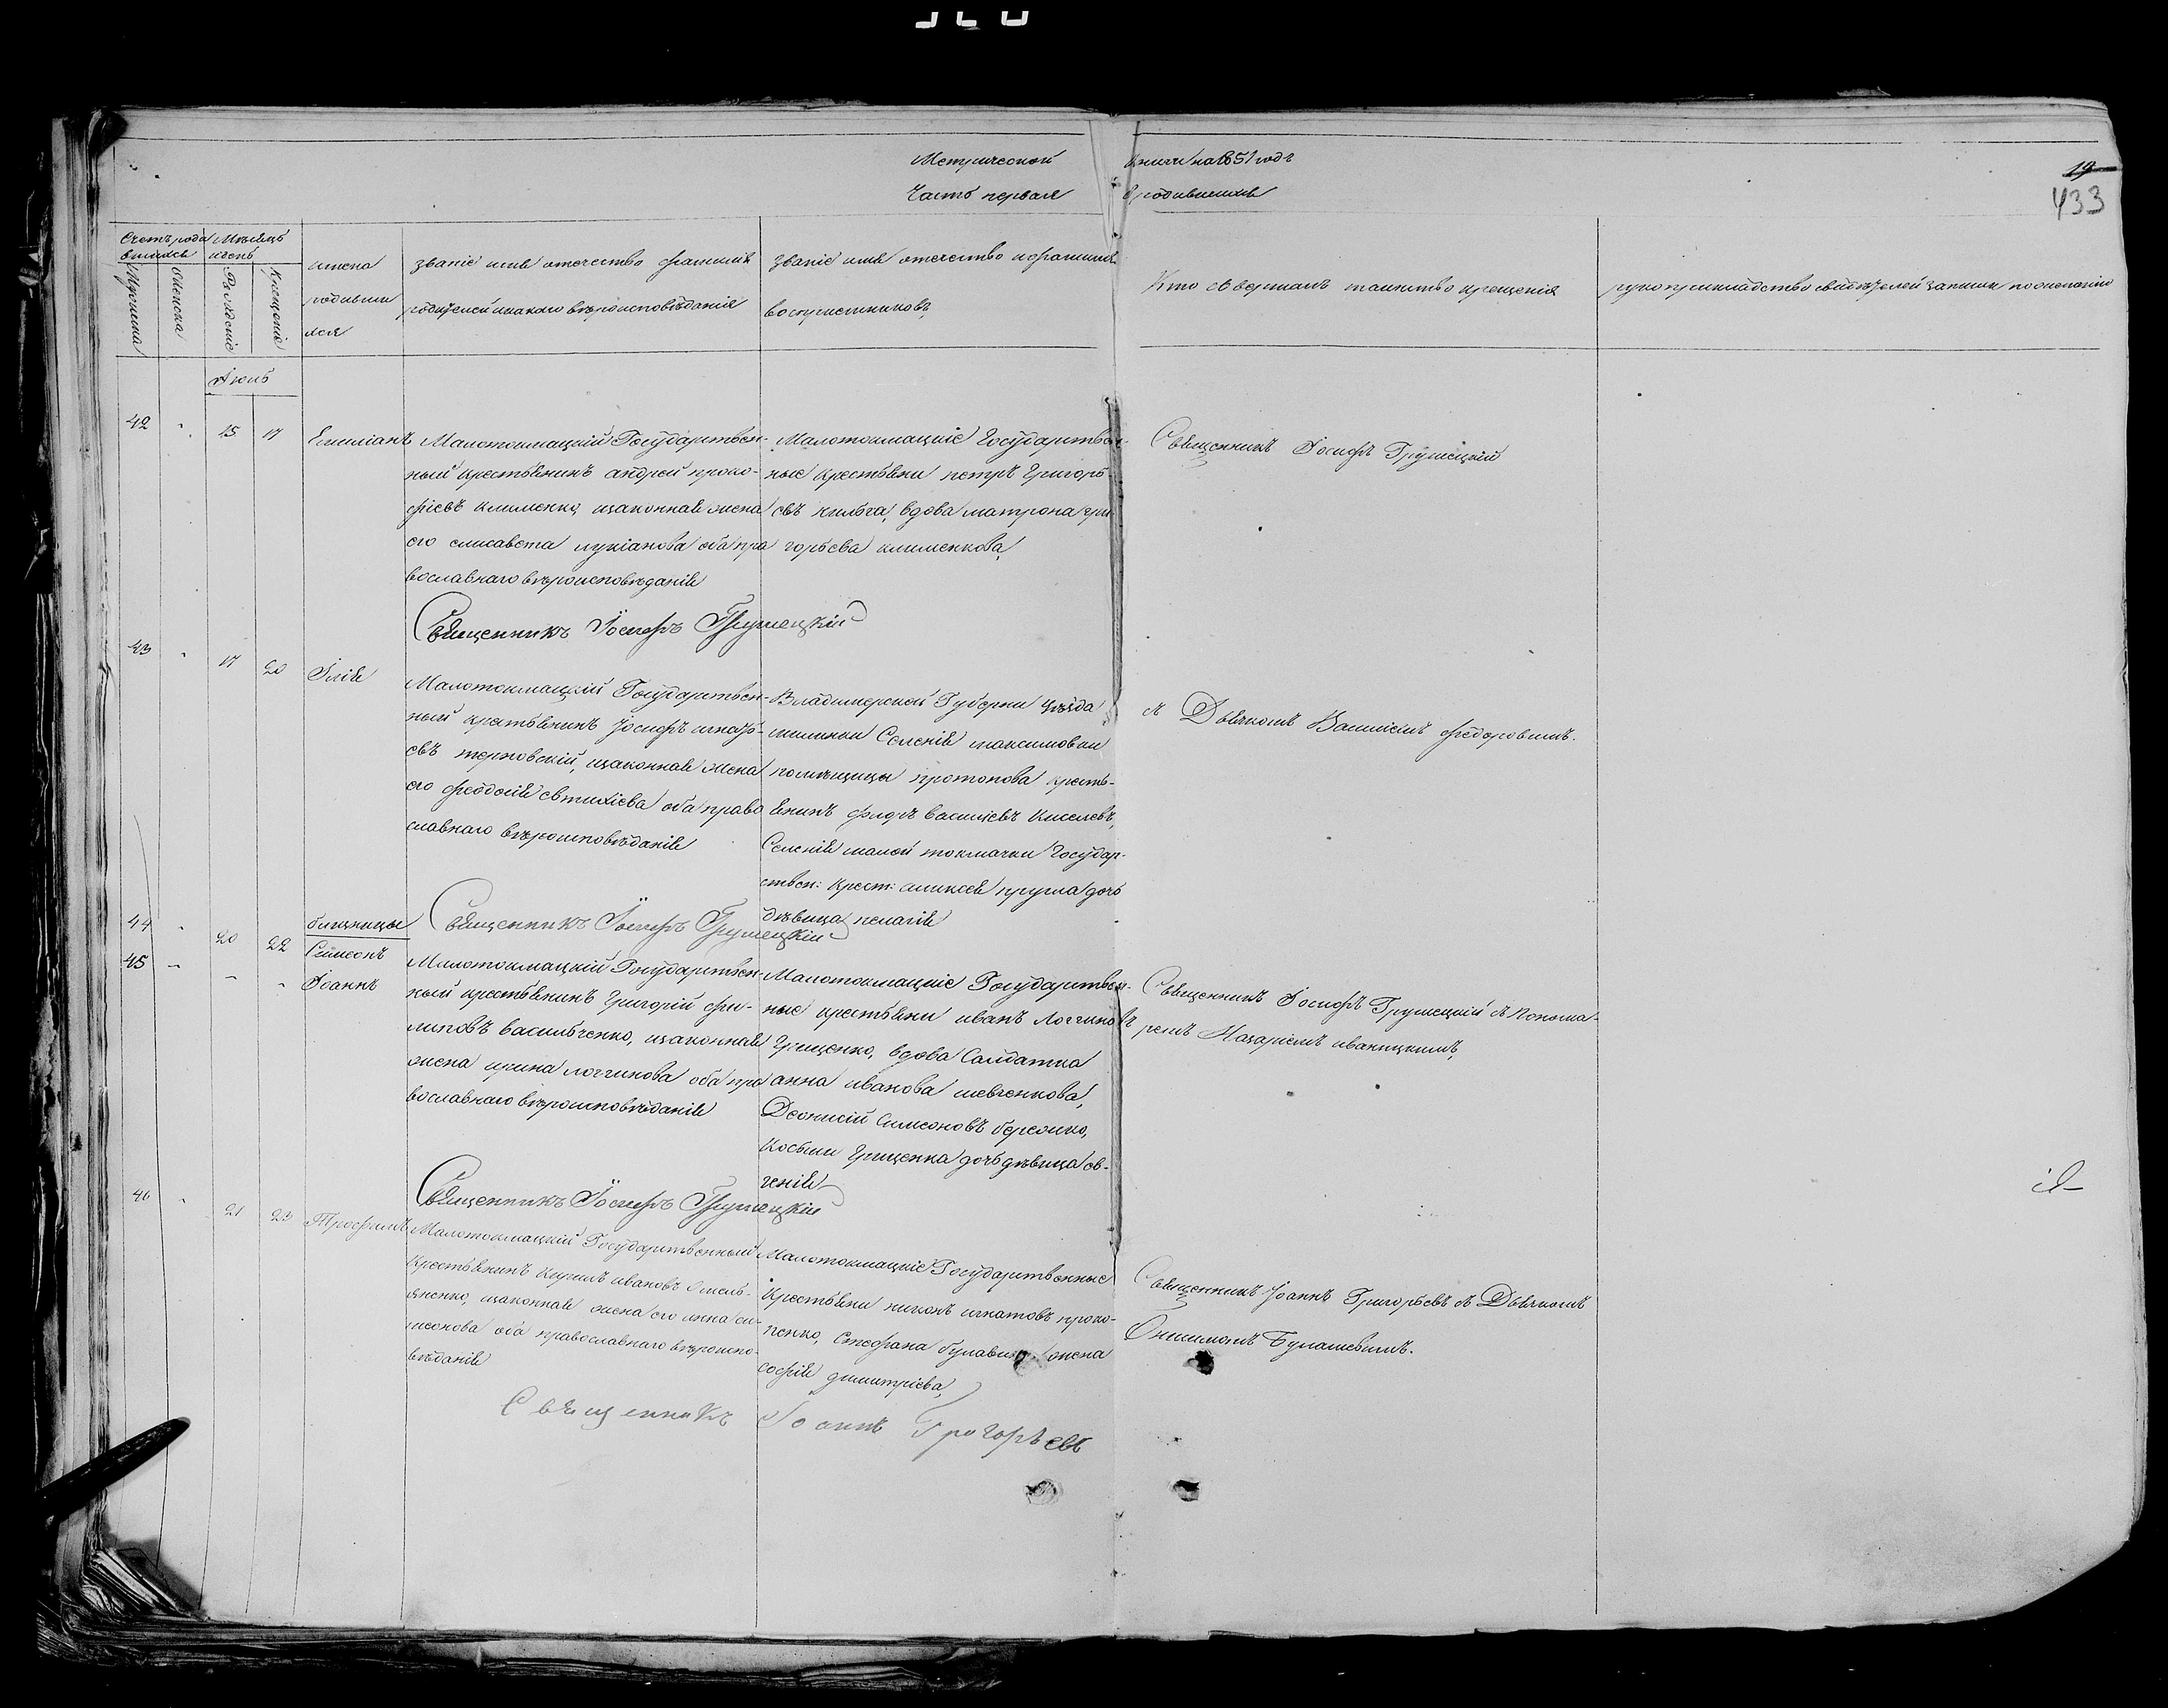 Метрической книги на 1851 годъ
Часть первая о родившихся
19
433
Счетъ родившихся
Мѣсяцъ и день
Мужеска
Женска
Рожденіе
Крещеніе
имена
родивши
хся
званіе имя отечество фамилія
родителей и какаго вѣроисповѣданія
званіе имя отечество и фамилія
воспріемниковъ
Кто совершалъ таинство крещенія
рукоприкладство свидѣтелей записи по желанію
Іюль
42
15
17
Емиліанъ
Малотокмацкій Государствен-
ный крестьянинъ андрей проко-
фіевъ клименко, изаконная жена
его елисавета лукіанова оба пра
вославнаго вѣроисповѣданія
Малотокмацкіе Государствен-
ные крестьяни петръ Григорь-
евъ кильга, вдова матрона гри
горьева клименкова,
Священникъ Іосифъ Грушецкій
Священникъ Іосифъ Грушецкій
43
17
20
Илія
Малотокмацкій Государствен-
ный крестьянинъ Іосифъ игнать-
евъ терновскій, изаконная жена
его феодосія евтихіева оба право
славнаго вѣроисповѣданія
Владимерской Губерни уѣзда
Селенія максимовки
помѣщицы протопова кресть-
янинъ василіевъ Киселевъ,
Селенія малой токмачки Государ-
ствен: крест: аликсея пругла дочь
дѣвица пелагія
съ Дьячкомъ Василіемъ федоровымъ.
Священникъ Іосифъ Грушецкій
44
45
20
22
близницы
Симеонъ
Іоаннъ
Малотокмацкій Государствен-
ный крестьянинъ Григорій фи-
липовъ васильченко, изаконная
жена ирина логгинова оба пра
вославнаго вѣроисповѣданія
Малотокмацкіе Государствен-
ные крестьяни иванъ Логгиновъ
Грищенко, вдова Салдатка
анна иванова шевченкова,
Деонисій Симеоновъ бережко,
Косьми Грищенка дочь дѣвица ев-
генія
Священникъ Іосифъ Грушецкій съ Понома-
ремъ Назаріемъ иваницкимъ,
Священникъ Іосифъ Грушецкій
46
21
23
Трофимъ
Малотокмацкій Государственный
Крестьянинъ кирилъ ивановъ Омель-
яненко, изаконная жена его анна си-
меонова оба православнаго вѣроиспо-
вѣданія
Малотокмацкіе Государственные
Крестьяни никонъ игнатовъ проко-
пенко, Стефана булавина жена
софія димитріева,
Священникъ Іоаннъ Григорьевъ съ Дьячкомъ
Онисимомъ Булашевымъ.
Священникъ Іоаннъ Григорьевъ